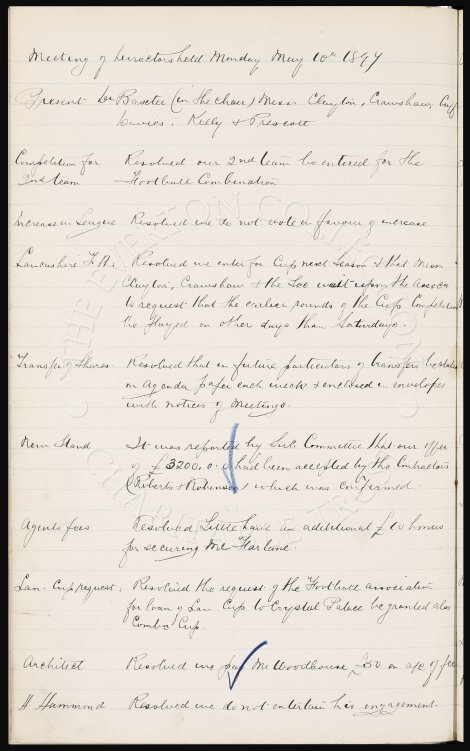 Meeting of Directors held Monday May 10th 1897
Present Dr Baxter (in the chair) Messrs Clayton, Crawshaw, Cuff
Davies, Kelly & Prescott
Competition for 2nd team Resolved our 2nd team be entered for the
Football Combination
Increase in League Resolved we do not vote in favour of increase
Lancashire F.A. Resolved we enter for Cup next Season & that Messrs
Clayton, Crawshaw & the Sec wait upon the assocn
to request that the earlier rounds of the Cup Competition
be played on other days than Saturdays.
Transfer of Shares Resolved that in future particulars of transfers be stated
on Agenda paper each week & enclosed in envelopes
with notices of Meetings.
New Stand It was reported by Sub. Committee that our offer
of £3200.0.0 had been accepted by the Contractors
(Roberts & Robinson) which was confirmed.
Agents fees Resolved Little have an additional £10 bonus
for securing McFarlane.
Lan. Cup request. Resolved the request of the Football association
for loan of Lan Cup to Crystal Palace be granted also
Combn Cup.
Architect Resolved we pay Mr Woodhouse £50 on a/c of fees
H Hammond Resolved we do not entertain his engagement.
THE EVERTON COLLECTION
CHARITABLE TRUST